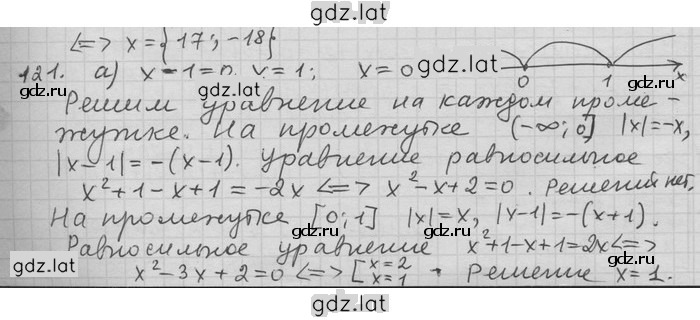 gdz.lat
<=> x = {17; -18}
gdz.lat
121. а) x - 1 = 0. x = 1; x = 0
gdz.lat
0 1 x
gdz.lat
Решим уравнение на каждом проме-
жутке. На промежутке (-∞; 0] |x| = -x,
gdz.lat
gdz.lat
|x - 1| = -(x - 1). Уравнение равносильное
x² + 1 - x + 1 = -2x <=> x² - x + 2 = 0. Решений нет.
gdz.lat
На промежутке [0; 1] |x| = x, |x - 1| = -(x + 1).
gdz.lat
gdz.lat
Равносильное уравнение x² + 1 - x + 1 = 2x <=>
gdz.lat
x² - 3x + 2 = 0 <=> [x = 2 x = 1. Решение x = 1.
gdz.lat
gdz.lat